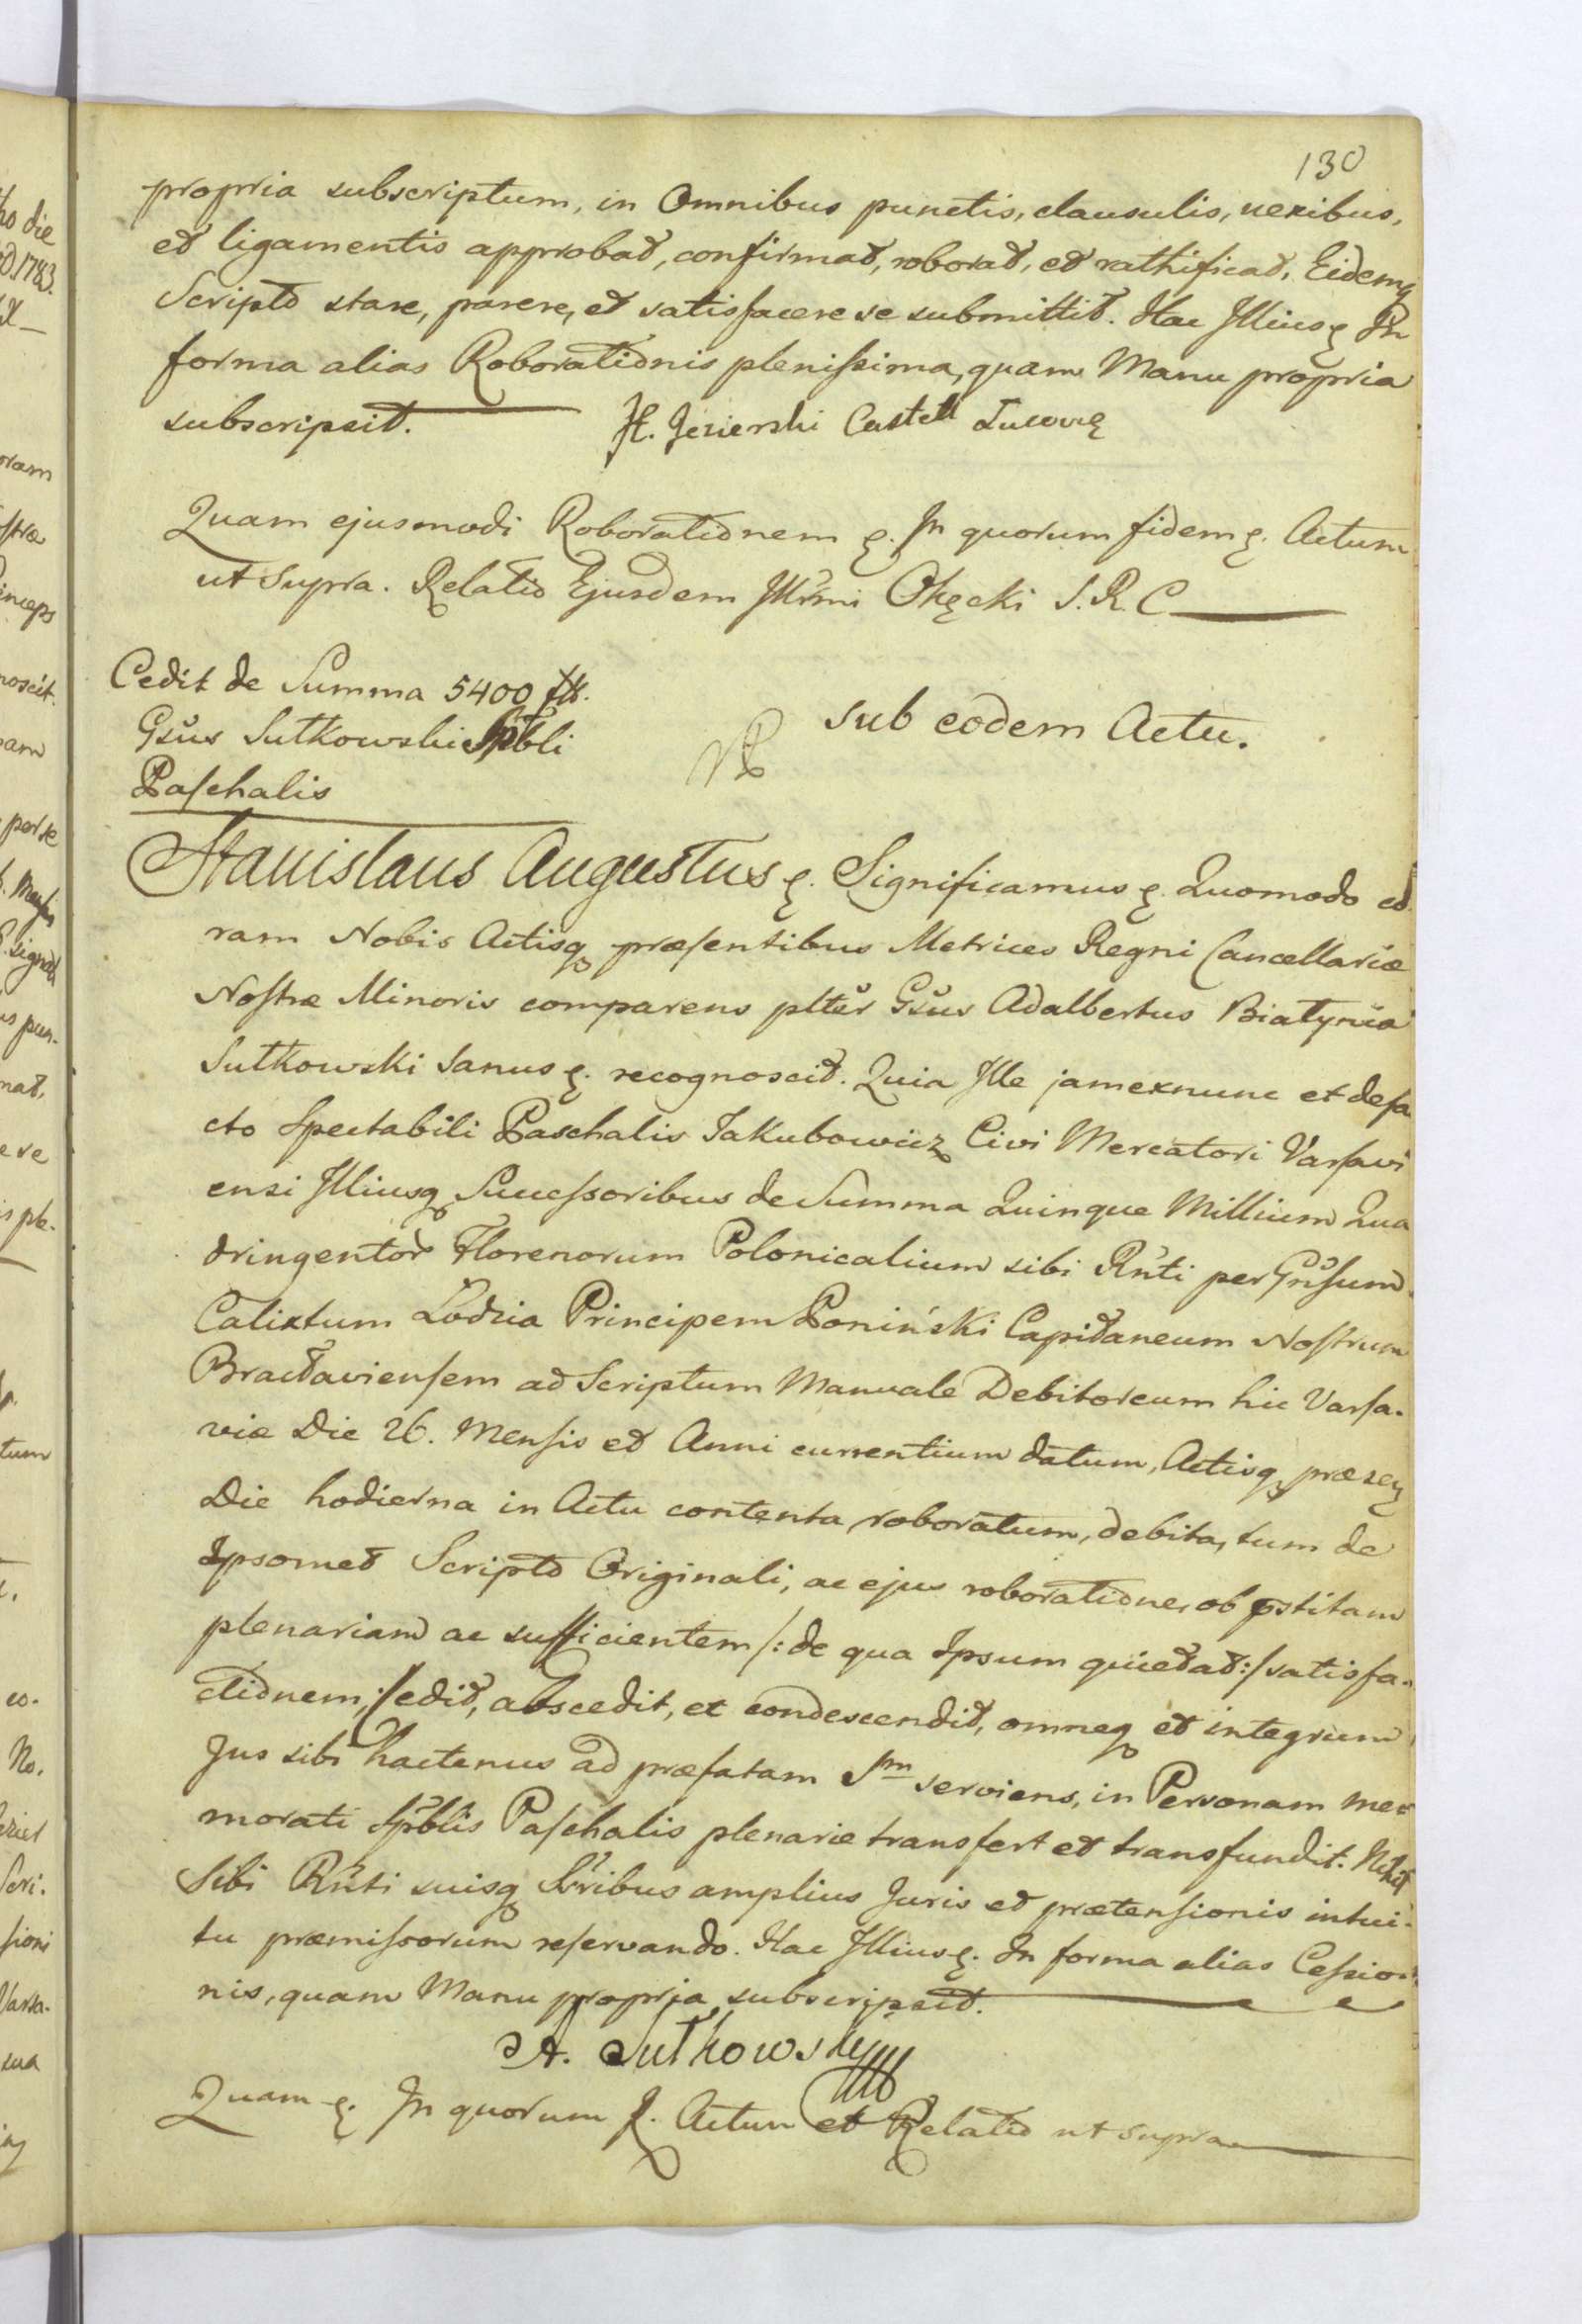 130
propria subscriptum, in Omnibus punctis, clausulis, nexibus,
et ligamentis approbat, confirmat, roborat, et rathificat, Eidemq
Scripto stare, parere, et satisfacere se submittit. Hac Illius ę In
forma alias Roborationis plenissima, quam Manu propria
subscripsit. H. Jezierski Castell Lucovię
Quam ejusmodi Roborationem ę. In quorum fidem ę. Actum
ut Supra. Relatio Ejusdem Illrmi Okęcki S. R. C
Cedit de Summa 5400 fll.
Gsus Sutkowski Spbli
Paschalis
sub eodem Actu.
Stanislaus Augustus ę. Significamus ę. Quomodo co
ram Nobis Actisq præsentibus Metrices Regni Cancellariæ
Nostræ Minoris comparens pltèr Gsus Adalbertus Białynia
Sutkowski Sanus ę. recognoscit. Quia Ille jamexnunc et defa
cto Spectabili Paschalis Jakubowicz Civi Mercatori Varsavi
ensi Illiusq Successoribus de Summa Quinque Millium Qua
dringentor Florenorum Polonicalium sibi Rnti per Gnsum
Calixtum Łodzia Principem Poniński Capitaneum Nostrum
Bracłaviensem ad Scriptum Manuale Debitoreum hic Varsa-
viæ Die 26. Mensis et Anni currentium datum, Actisq præsen
Die hodierna in Actu contenta roboratum, debita, tum de
Ipsomet Scripto Originali, ac ejus roboratione, ob pstitam
plenariam ac sufficientem /: de qua Ipsum quietat :/ satisfa-
ctionem, Cedit, abscedit, et condescendit, omneq et integrum
Jus sibi hactenus ad præfatam Sm serviens, in Personam me-
morati Spblis Paschalis plenarie transfert et transfundit. Nihil
Sibi Rnti suisq Sribus amplius Juris et prætensionis intui-
tu præmissorum reservando. Hac Illius ę. In forma alias Cessio-
nis, quam Manu propria subscripsit.
A. Sutkowski
Quam ę. In quorum f. Actum et Relatio ut supra